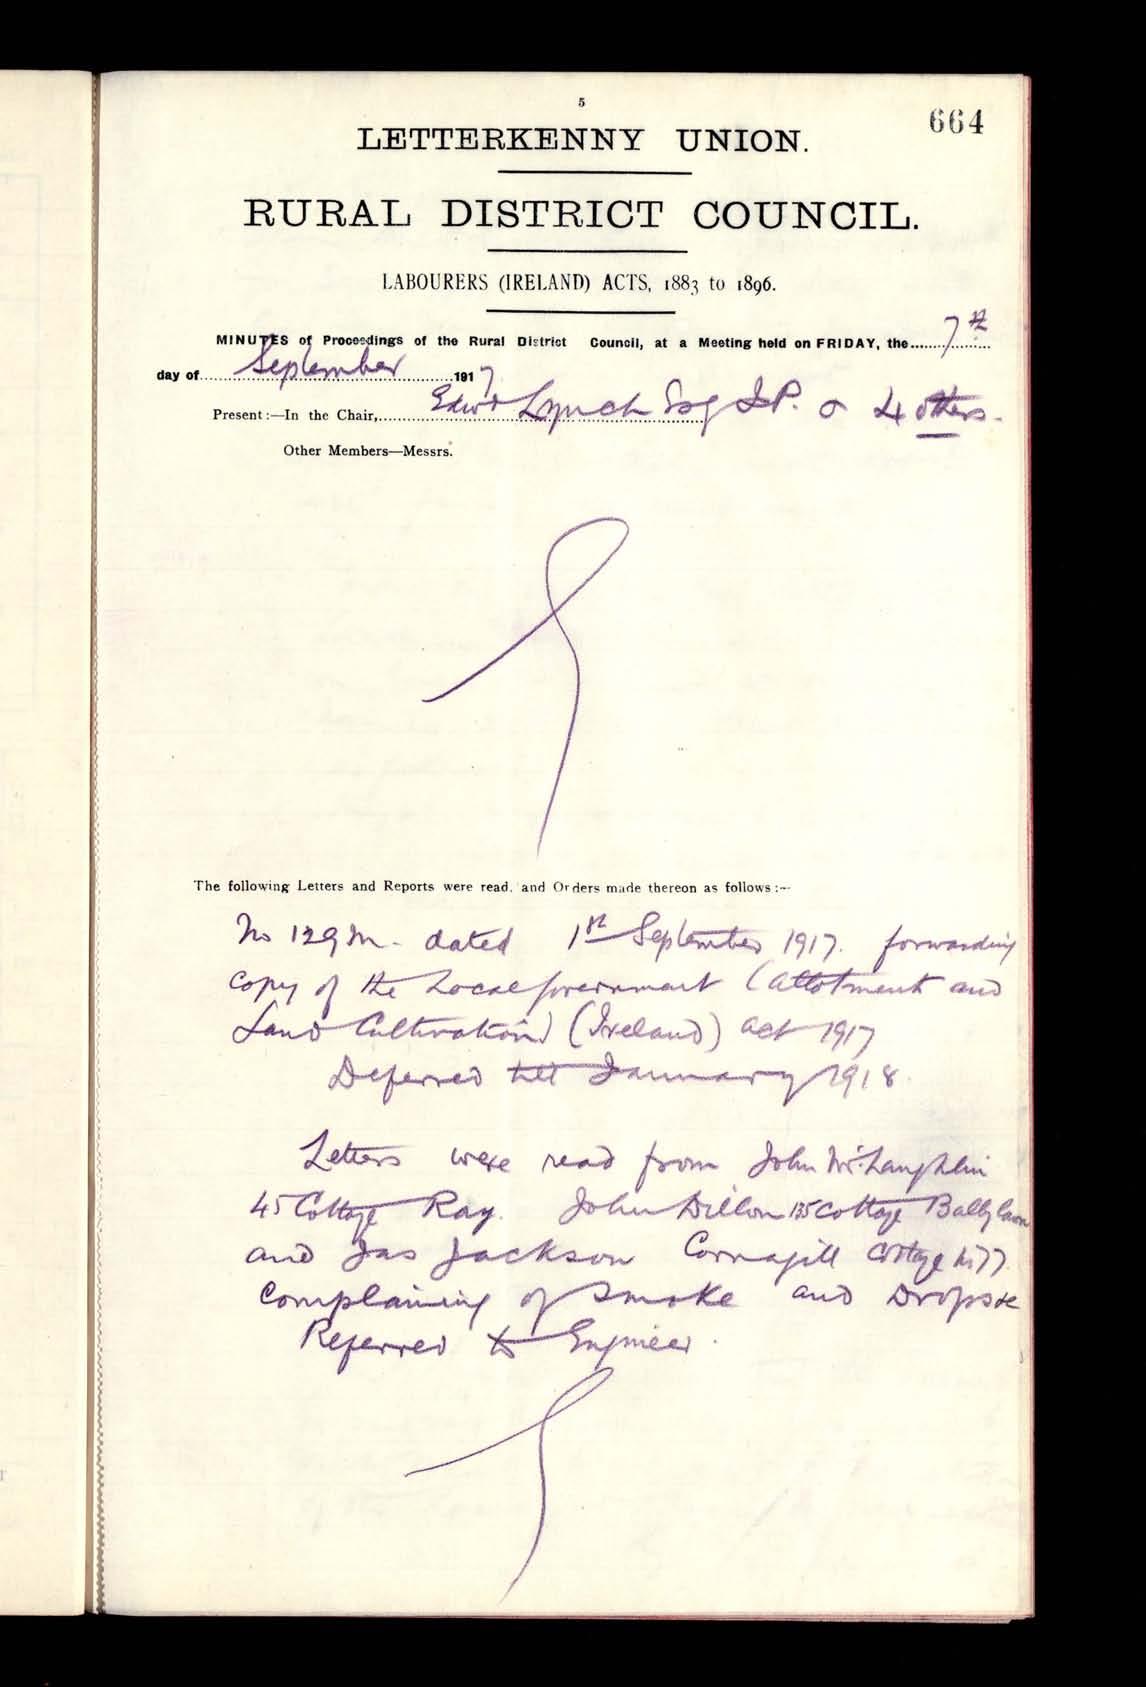 5
664
LETTERKENNY UNION.
RURAL DISTRICT COUNCIL.
LABOURERS (IRELAND) ACTS, 1883 to 1896.
MINUTES of Proceedings of the Rural District Council, at a Meeting held on FRIDAY, the 7th
day of September 1917
Present:—In the Chair, Edwd Lynch Esq J.P. & 4 others.
Other Members—Messrs.
The following Letters and Reports were read, and Orders made thereon as follows:—
No 129 M. dated 1st September 1917. forwarding
copy of the Local Government (Allotments and
Land Cultivation) (Ireland) Act 1917
Deferred till January 1918.
Letters were read from John McLaughlin
45 Cottage Ray. John Dillon 135 Cottage Ballylawn
and Jas Jackson Cornagill Cottage No 77.
Complaining of Smoke and Drops &c
Referred to Engineer.